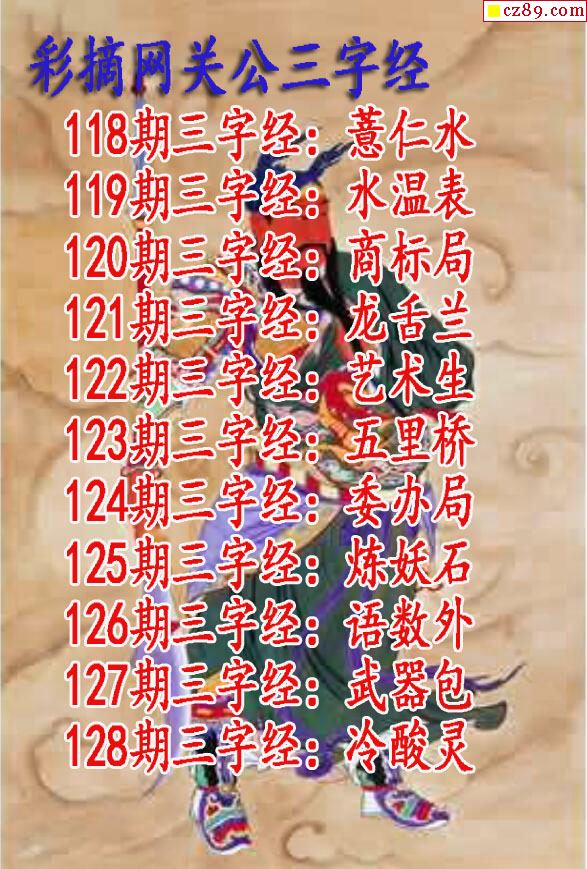 cz89.com
彩摘网关公三字经
118期三字经：薏仁水
119期三字经：水温表
120期三字经：商标局
121期三字经：龙舌兰
122期三字经：艺术生
123期三字经：五里桥
124期三字经：委办局
125期三字经：炼妖石
126期三字经：语数外
127期三字经：武器包
128期三字经：冷酸灵